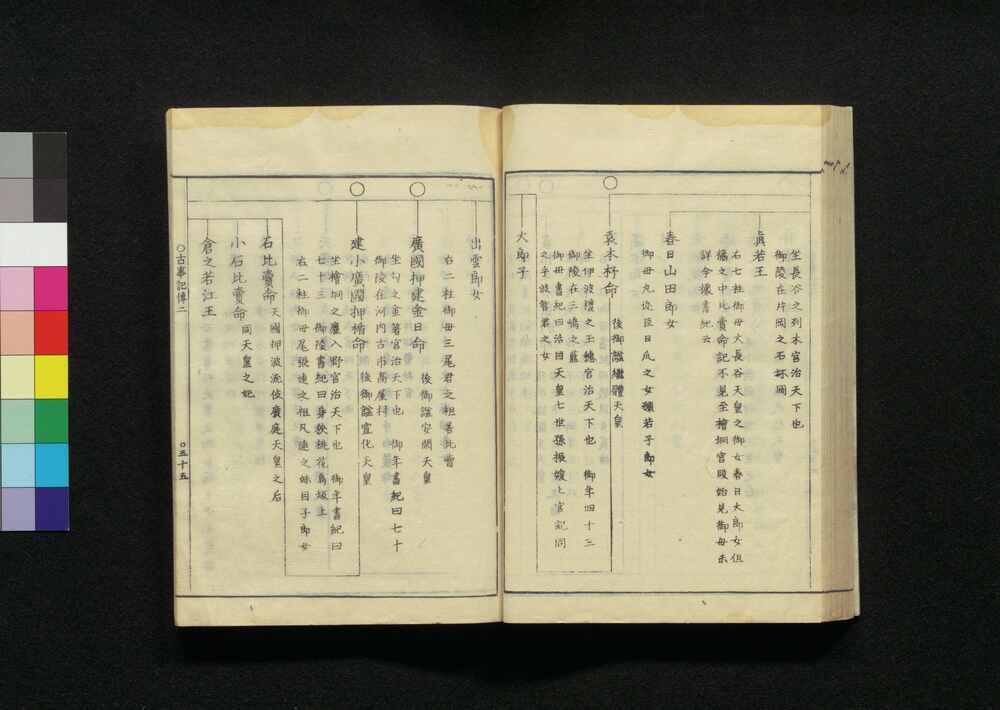 坐長谷之列木宮治天下也
御陵在片岡之石坏岡
眞若王
右七柱御母大長谷天皇之御女春日大郎女但
橘之中比賣命記不見至檜坰宮段始見御母未
詳今據書紀云
春日山田郎女
御母丸迩臣日爪之女糠若子郎女
袁本杼命
後御諡繼體天皇
坐伊波禮之玉穗宮治天下也 御年四十三
御陵在三嶋之藍
御母書紀曰
之乎波智君之女
大郎子
出雲郎女
右二柱御母三尾君之祖
廣國押建金日命
後御諡安閑天皇
坐勾之金箸宮治天下也 御年書紀曰七十
御陵在河内古市高屋村
建小廣國押楯命
後御諡宣化天皇
坐檜坰之廬入野宮治天下也 御年書紀曰
七十三 御陵書紀曰身狹桃花鳥坂上
右二柱御母尾張連之祖凡連之妹目子郎女
石比賣命
天國押波流岐廣庭天皇之后
小石比賣命
同天皇之妃
倉之若江王
○古事記傳二
○五十五